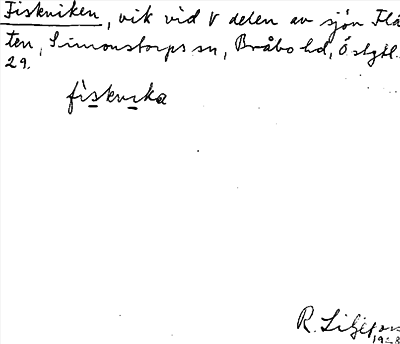 Fiskviken, vik vid V delen av sjön Flå
ten, Simonstorps sn, Bråbo hd, Östgtl.
29.
fiskvika
R. Liljefors